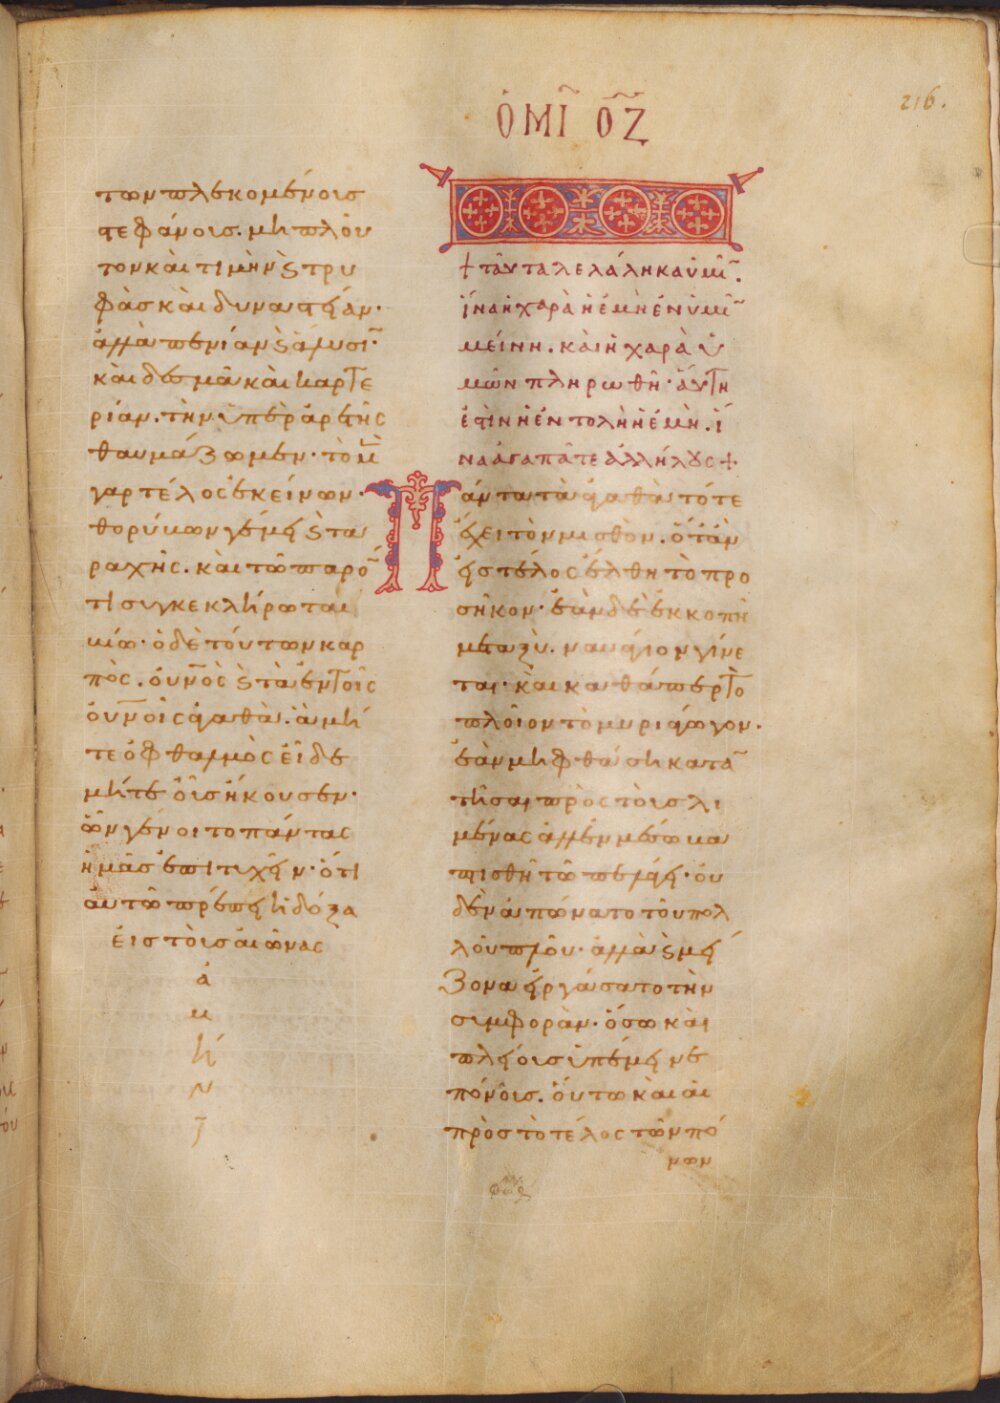 ὉΜΙ͂ Ο͂Ζ
216.
των πλεκομένοις
στεφάνοις. μὴ πλοῦ
τον καὶ τιμὴν ϛ τρυ
φὰς καὶ δυναστείαν·
ἀλλὰ πενίαν ϛ ἅλυσῖ·
καὶ δεσμὰ καὶ καρτε
ρίαν. τὴν ὑπὲρ ἀρετῆς
θαυμάζωμεν· τὸ μ̅
γαρ τέλος ἐκείνων·
θορύβων γέμει ϛ τα
ραχῆς. καὶ τῶ παρό͂
τι συγκεκλήρωται
βίω· ὁ δὲ τούτων καρ
πὸς. οὐν͂ος ϛ τὰ ἐν τοῖς
οὐν͂οις ἀγαθὰ. ἃ μή
τε ὀφθαλμὸς εἶδε
μήτε οὖς ἤκουσεν·
ὧν γένοιτο πάντας
ἡμᾶς ἐπιτυχεῖν· ὅτι
αὐτῶ πρέπει ἡ δόξα
εἰς τοὺς αἰῶνας
ἀ
μ
ή
ν
+ ταῦτα λελάληκα ὑμῖ͂.
ἵνα ἡ χαρὰ ἡ ἐμὴ ἐν ὑμῖ͂
μείνη. καὶ ἡ χαρὰ ὑ
μῶν πληρωθῆ· αὕτη
ἐστὶν ἡ ἐντολὴ ἡ ἐμὴ. ἵ
να ἀγαπᾶτε ἀλλήλους +
Πάντα τὰ ἀγαθὰ τότε
ἔχει τὸν μισθὸν. ὅταν
εἰς τέλος ἔλθη τὸ προ
σῆκον· ἐὰν δὲ ἐκκοπῆ
μεταξὺ. ναυάγιον γίνε
ται· καὶ καθάπερ τὸ
πλοῖον τὸ μυριαγωγον.
ἐὰν μὴ φθάση κατᾶ
τῆσαι πρὸς τοὺς λι
μένας ἀλλ' ἐν μέσω κα
πισθῆ τῶ πελάγει· οὐ
δὲν ἀπώνατο τοῦ πολ
λοῦ πλοῦ· ἀλλὰ ϛ μεί
ζονα εἰργάσατο τὴν
συμφορὰν· ὅσω καὶ
πλείους ὑπέμεινε
πόνους. οὕτω καὶ αἱ
πρὸς τὸ τέλος τῶν πό
νων